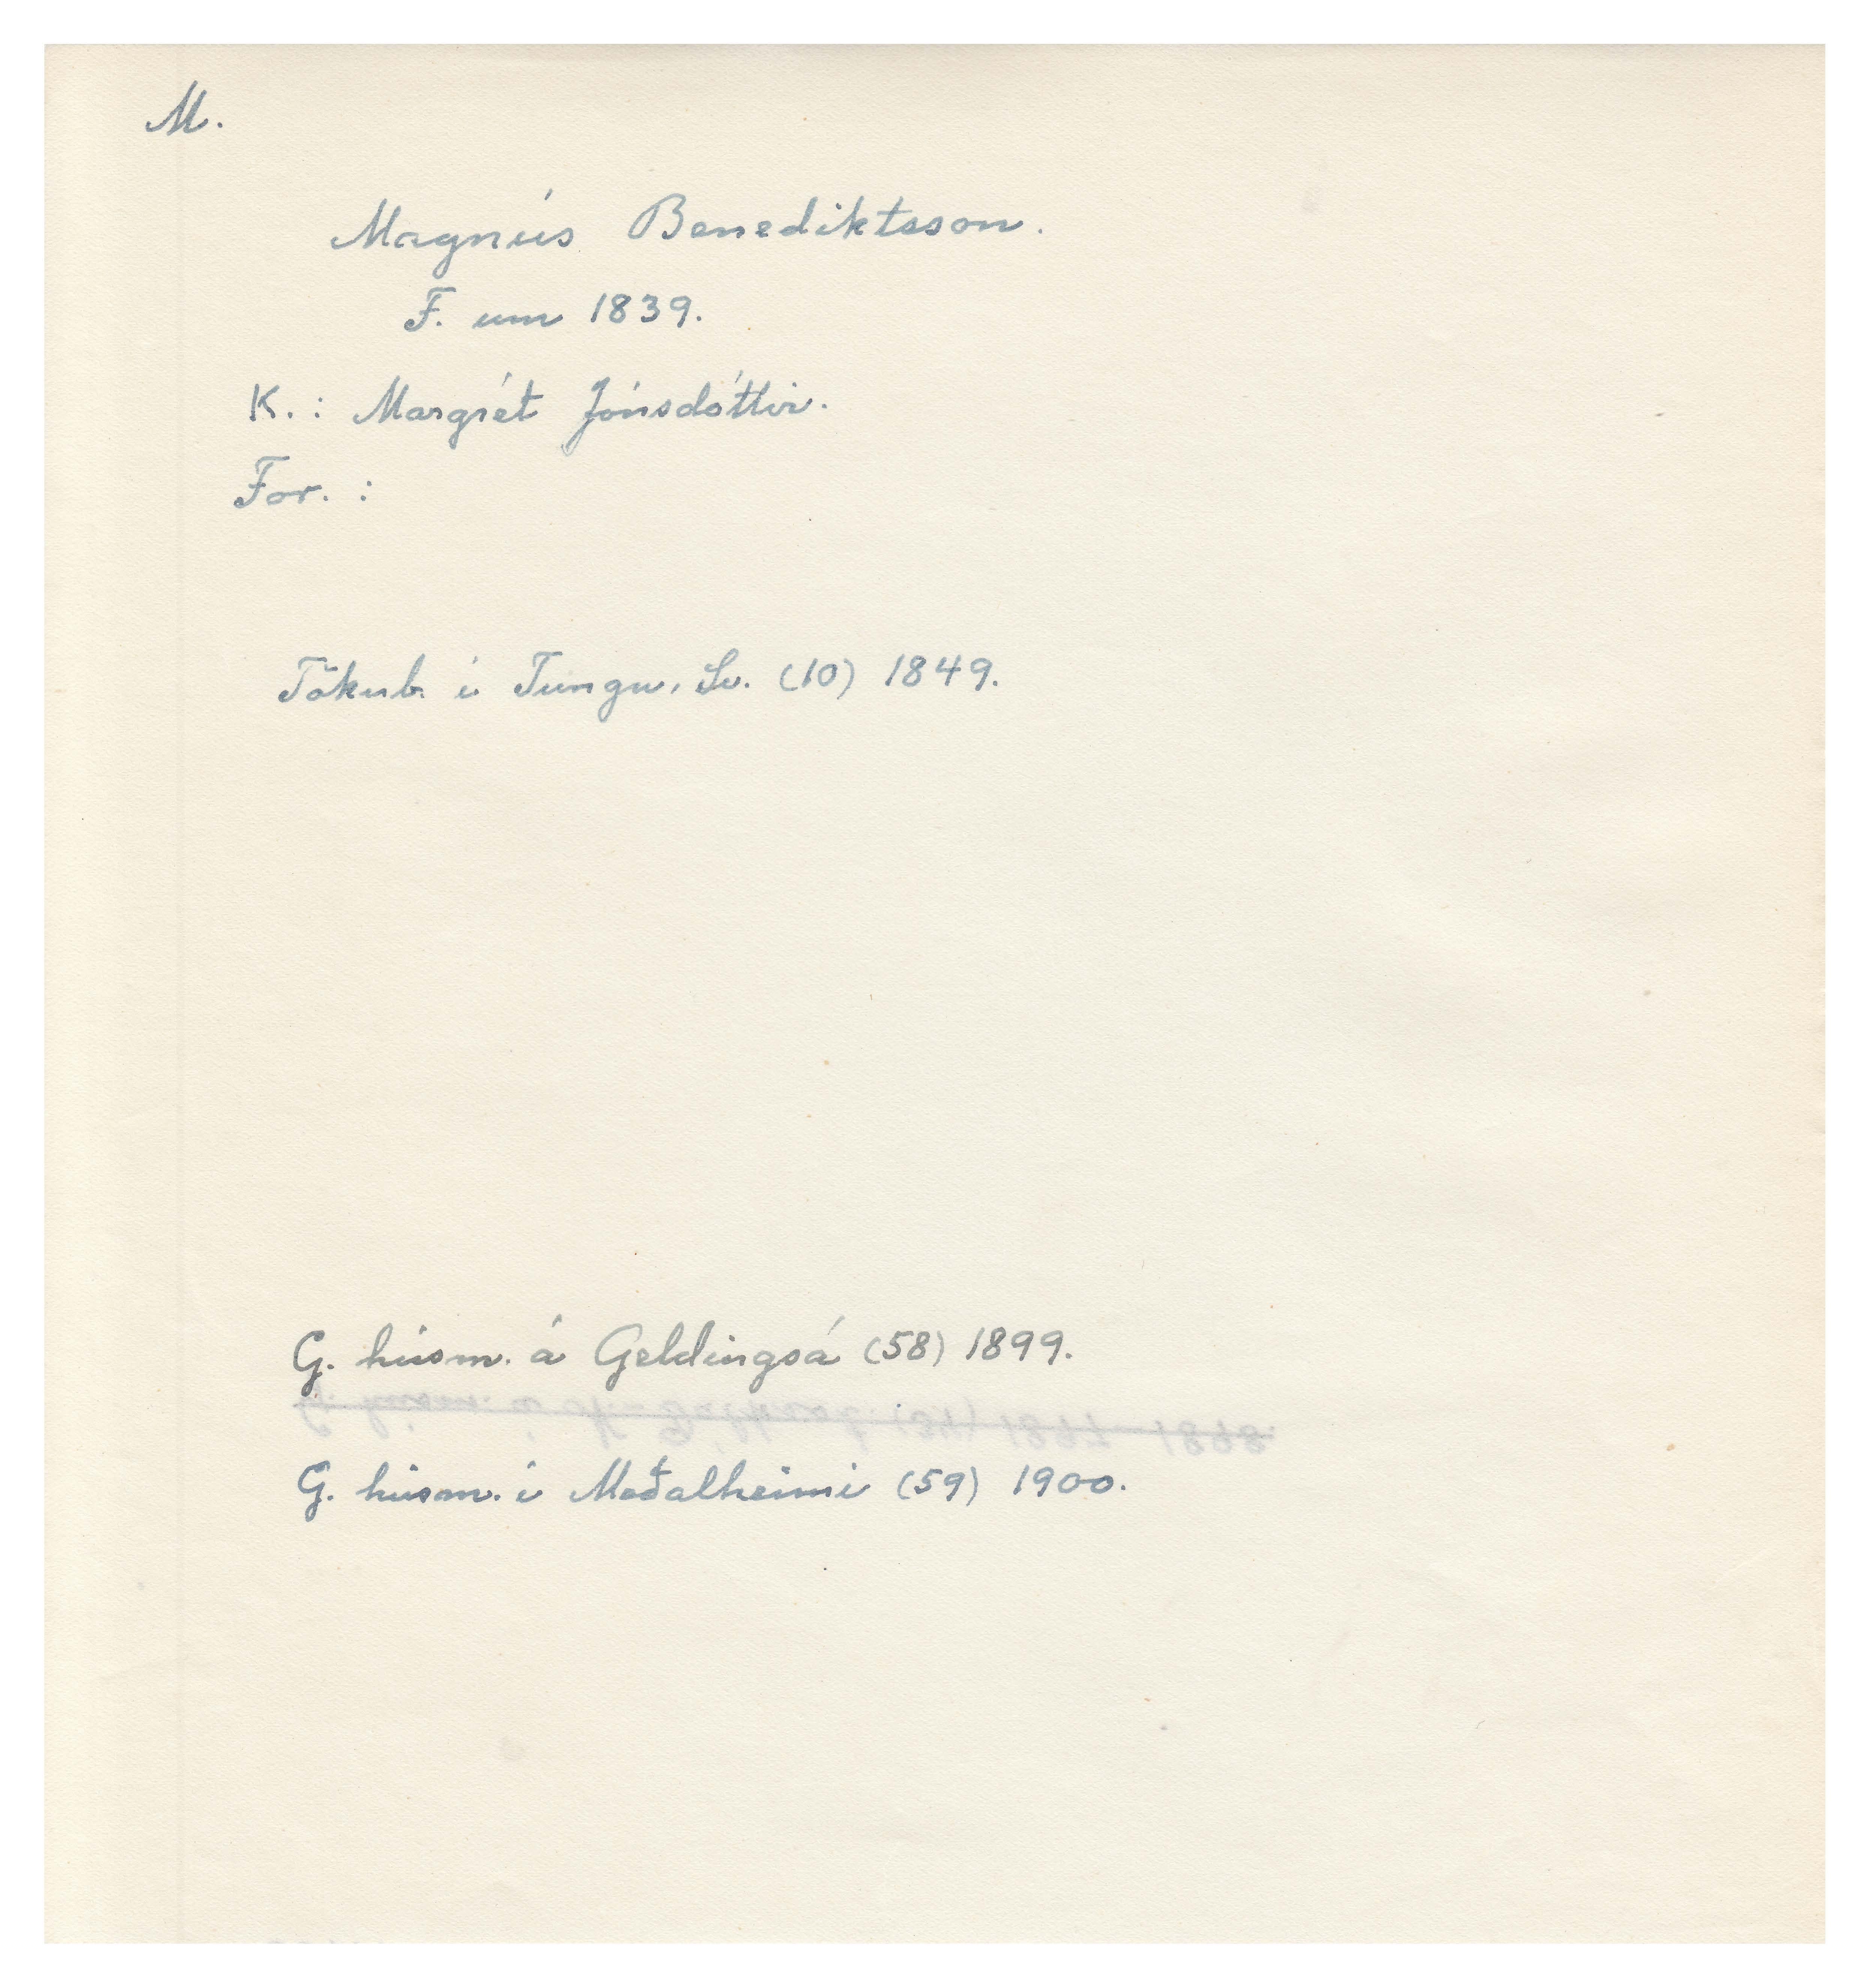 M.
Magnús Benediktsson.
F. um 1839.
K. : Margrét Jónsdóttir.
For. :
Tökub. í Tungu, Sv. (10) 1849.
G. húsm. á Geldingsá (58) 1899.
G. húsm. í Meðalheimi (59) 1900.